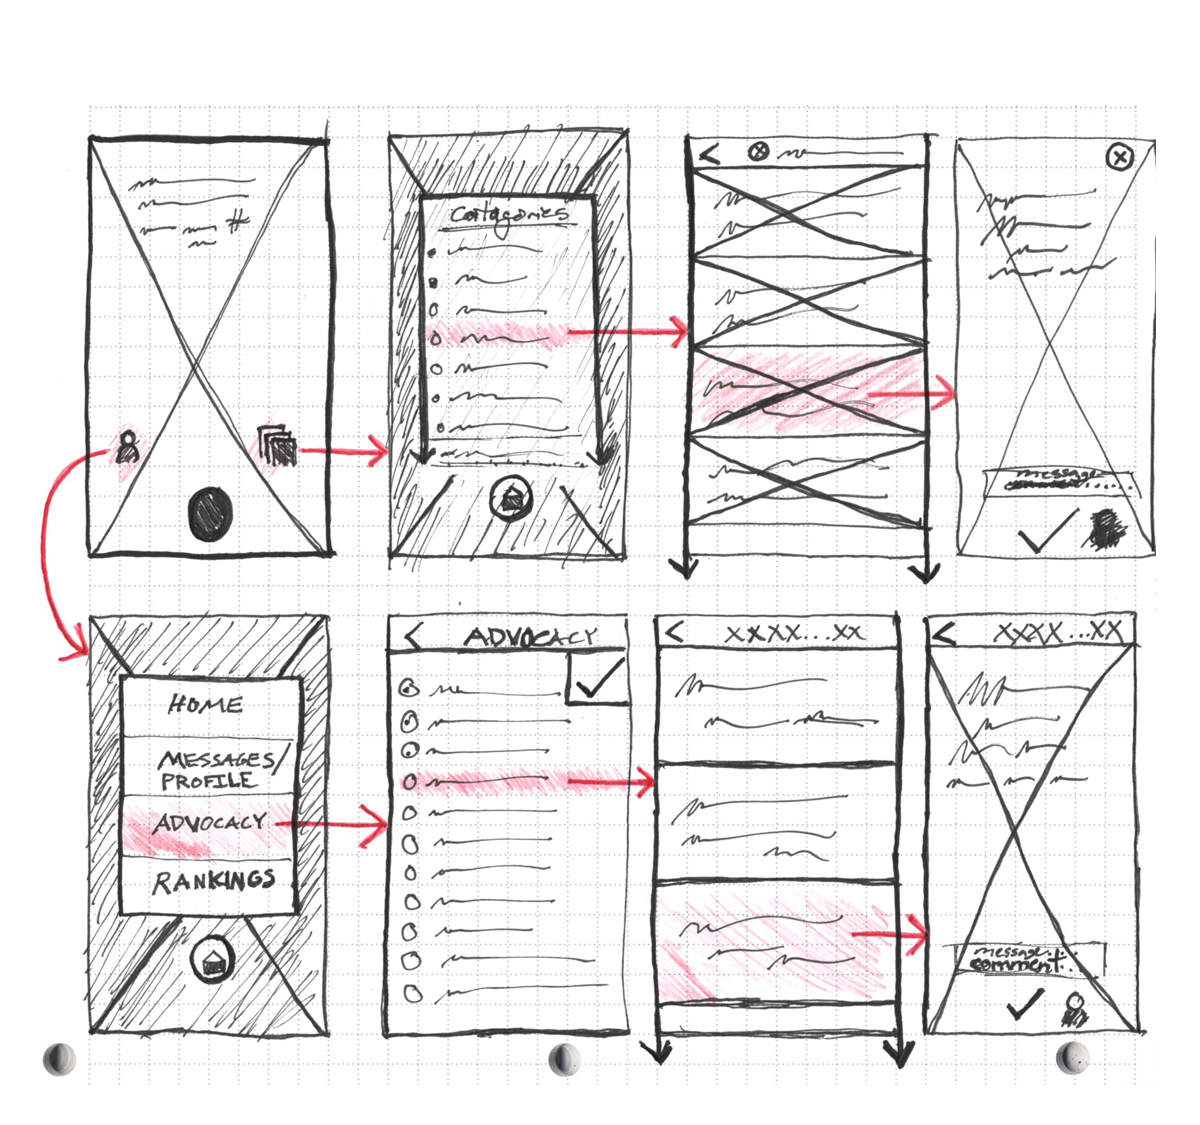 #
Catagories
message
comment......
HOME
MESSAGES/
PROFILE
ADVOCACY
RANKINGS
ADVOCACY
XXXX...XX
XXXX...XX
message..
comment..